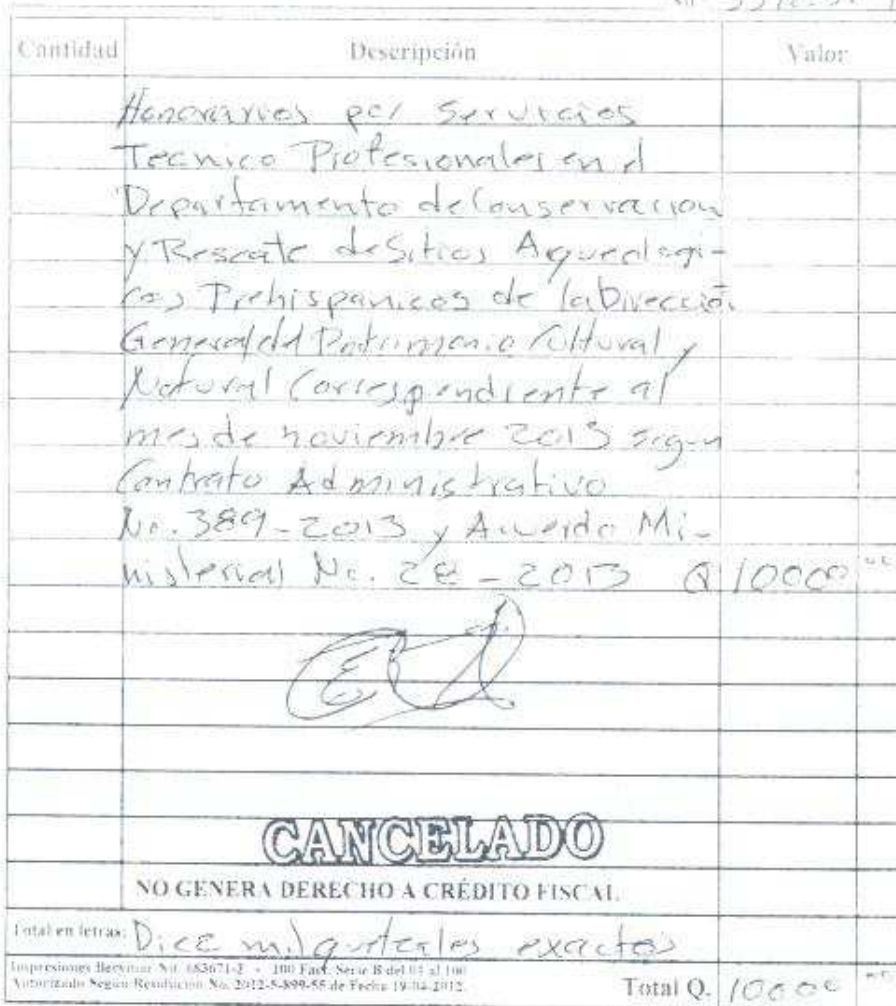 Cantidad Descripción Valor
Honorarios por Servicios
Tecnico Profesionales en el
Departamento de Conservacion
y Rescate de Sitios Arqueologi-
cos Prehispanicos de la Dirección
General del Patrimonio Cultural y
Natural Correspondiente al
mes de noviembre 2013 segun
Contrato Administrativo
No. 389-2013 y Acuerdo Mi-
nisterial No. 28-2013 Q 10000
CANCELADO
NO GENERA DERECHO A CRÉDITO FISCAL
Total en letras: Diez mil quetzales exactos
Impresiones Nit. 683671-2 - 100 Fact. Serie B del 01 al 100
Autorizado Según Resolución No. 2012-5-899-55 de Fecha 19-04-2012
Total Q. 10000